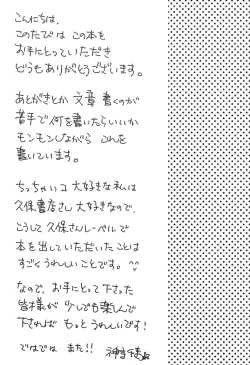 こんにちは、
このたびは この本を
お手にとっていただき
どうもありがとうございます。
あとがきとか 文章 書くのが
苦手で何を書いたらいいか
モンモンしながら これを
書いています。
ちっちゃいコ 大好きな私は
久保書店さん 大好きなので、
こうして 久保さんレーベルで
本を出していただいたことは
すごくうれしいことです。^^
なので、お手にとって下さった
皆様が 少しでも楽しんで
下されば もっとうれしいです!
ではでは また!!